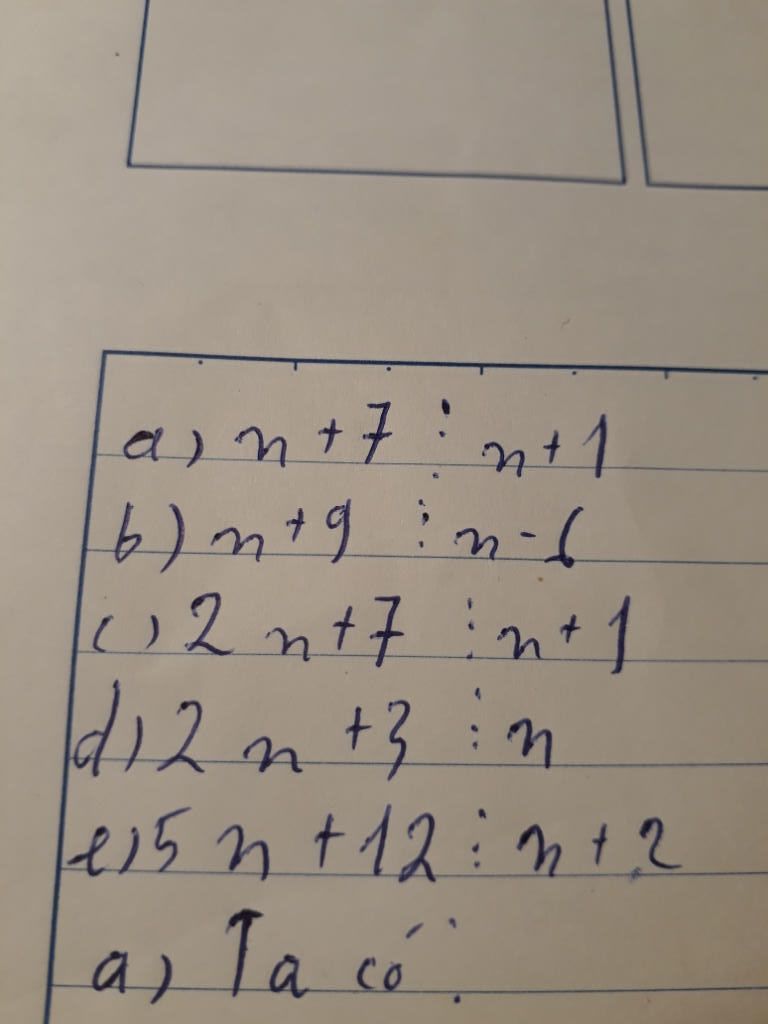 a) n + 7 ⋮ n + 1
b) n + 9 ⋮ n - 6
c) 2n + 7 ⋮ n + 1
d) 2n + 3 ⋮ n
e) 5n + 12 ⋮ n + 2
a) Ta có: